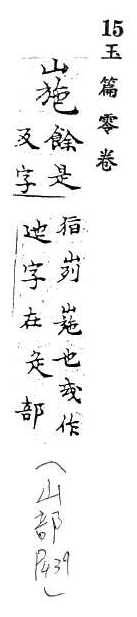 15玉篇零卷
崺餘是
反字
指峛崺也或作
迆字在辵部
(山部P439)